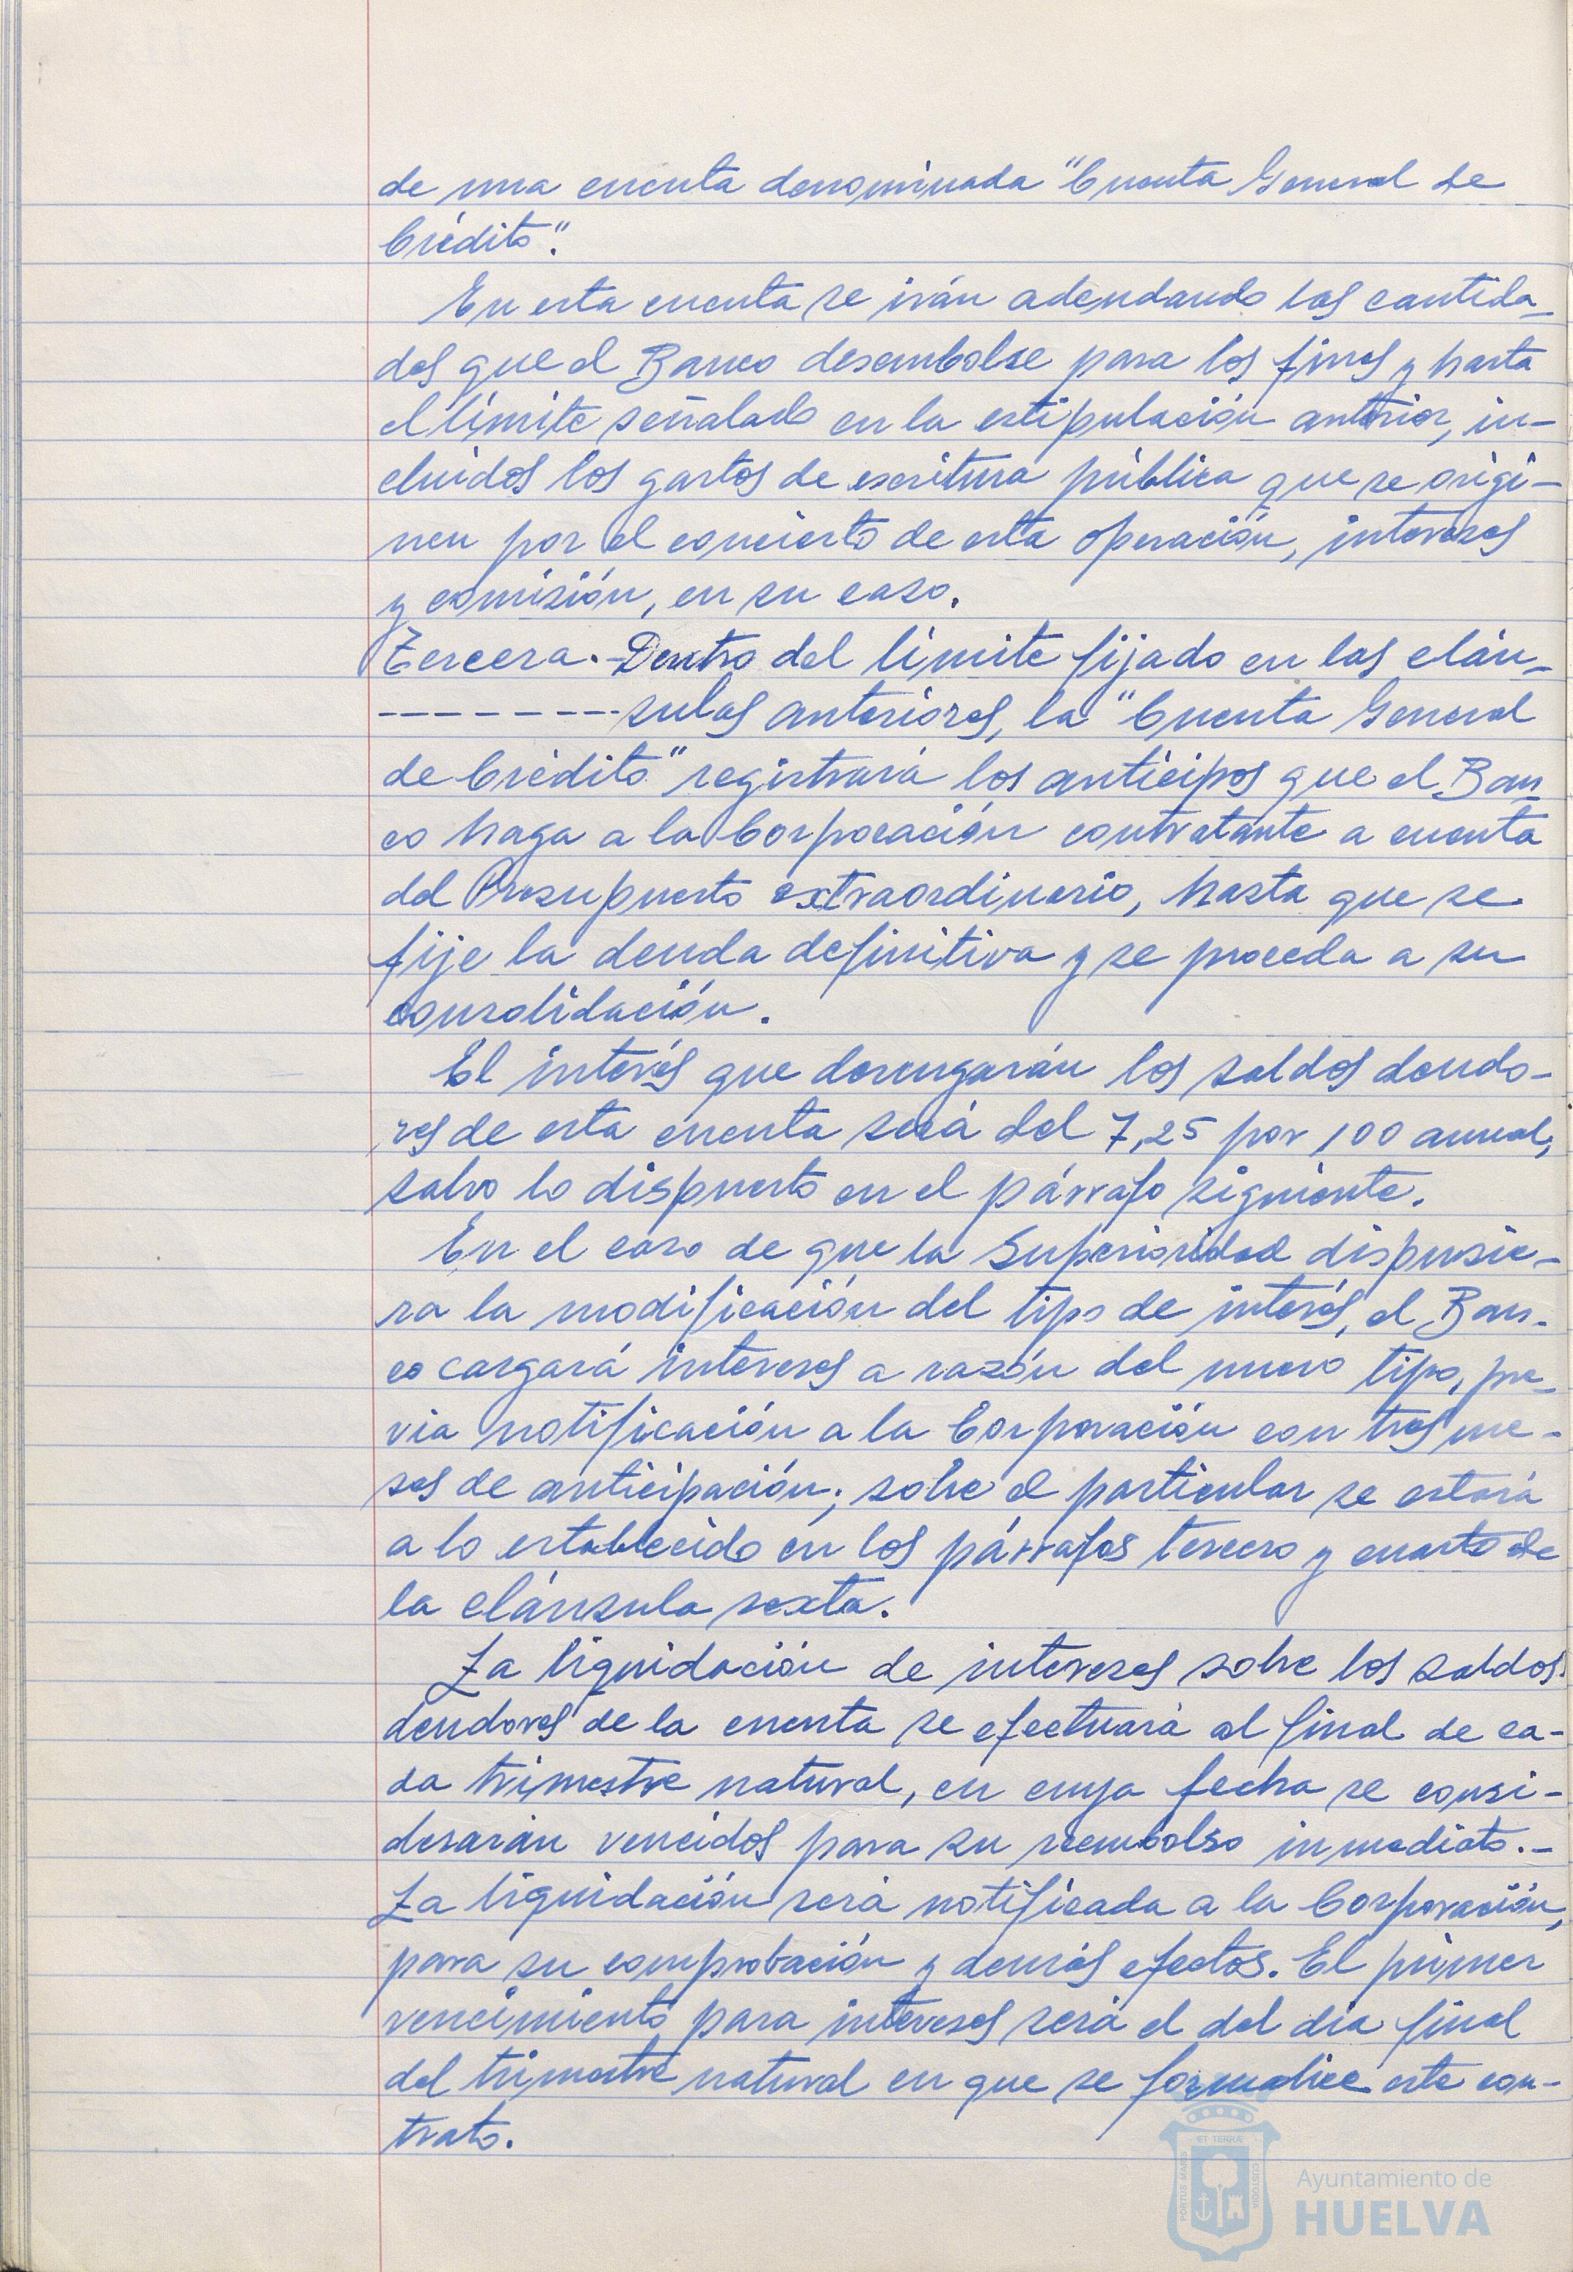 de una cuenta denominada "Cuenta General de
Crédito".
En esta cuenta se irán adeudando las cantida-
des que el Banco desembolse para los fines y hasta
el límite señalado en la estipulación anterior, in-
cluidos los gastos de escritura pública que se origi-
nen por el concierto de esta operación, intereses
y comisión, en su caso.
Tercera.- Dentro del límite fijado en las cláu-
---------sulas anteriores, la "Cuenta General
de Crédito" registrará los anticipos que el Ban-
co haga a la Corporación contratante a cuenta
del Presupuesto extraordinario, hasta que se
fije la deuda definitiva y se proceda a su
consolidación.
El interés que devengarán los saldos deudo-
res de esta cuenta será del 7,25 por 100 anual,
salvo lo dispuesto en el párrafo siguiente.
En el caso de que la Superioridad dispusie-
ra la modificación del tipo de interés, el Ban-
co cargará intereses a razón del nuevo tipo, pre-
via notificación a la Corporación con tres me-
ses de anticipación; sobre el particular se estará
a lo establecido en los párrafos tercero y cuarto de
la cláusula sexta.
La liquidación de intereses sobre los saldos
deudores de la cuenta se efectuará al final de ca-
da trimestre natural, en cuya fecha se consi-
derarán vencidos para su reembolso inmediato.-
La liquidación será notificada a la Corporación,
para su comprobación y demás efectos. El primer
vencimiento para intereses será el del día final
del trimestre natural en que se formalice este con-
trato.
ET TERRAE
PORTUS MARIS
CUSTODIA
Ayuntamiento de
HUELVA